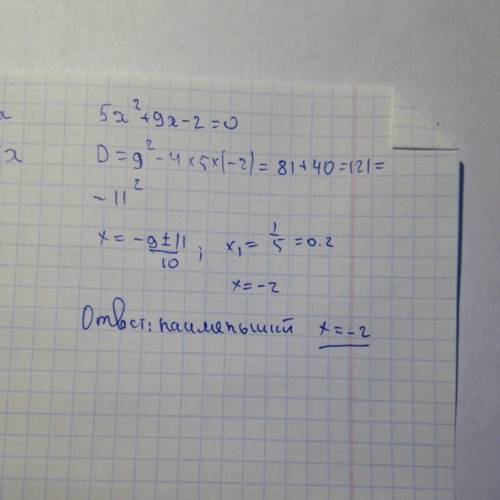 5x²+9x-2=0
x
D=9²-4×5×(-2)=81+40=121=
x
-11²
x=-9±11/10; x₁=1/5=0.2
x=-2
Ответ: наименьший x=-2